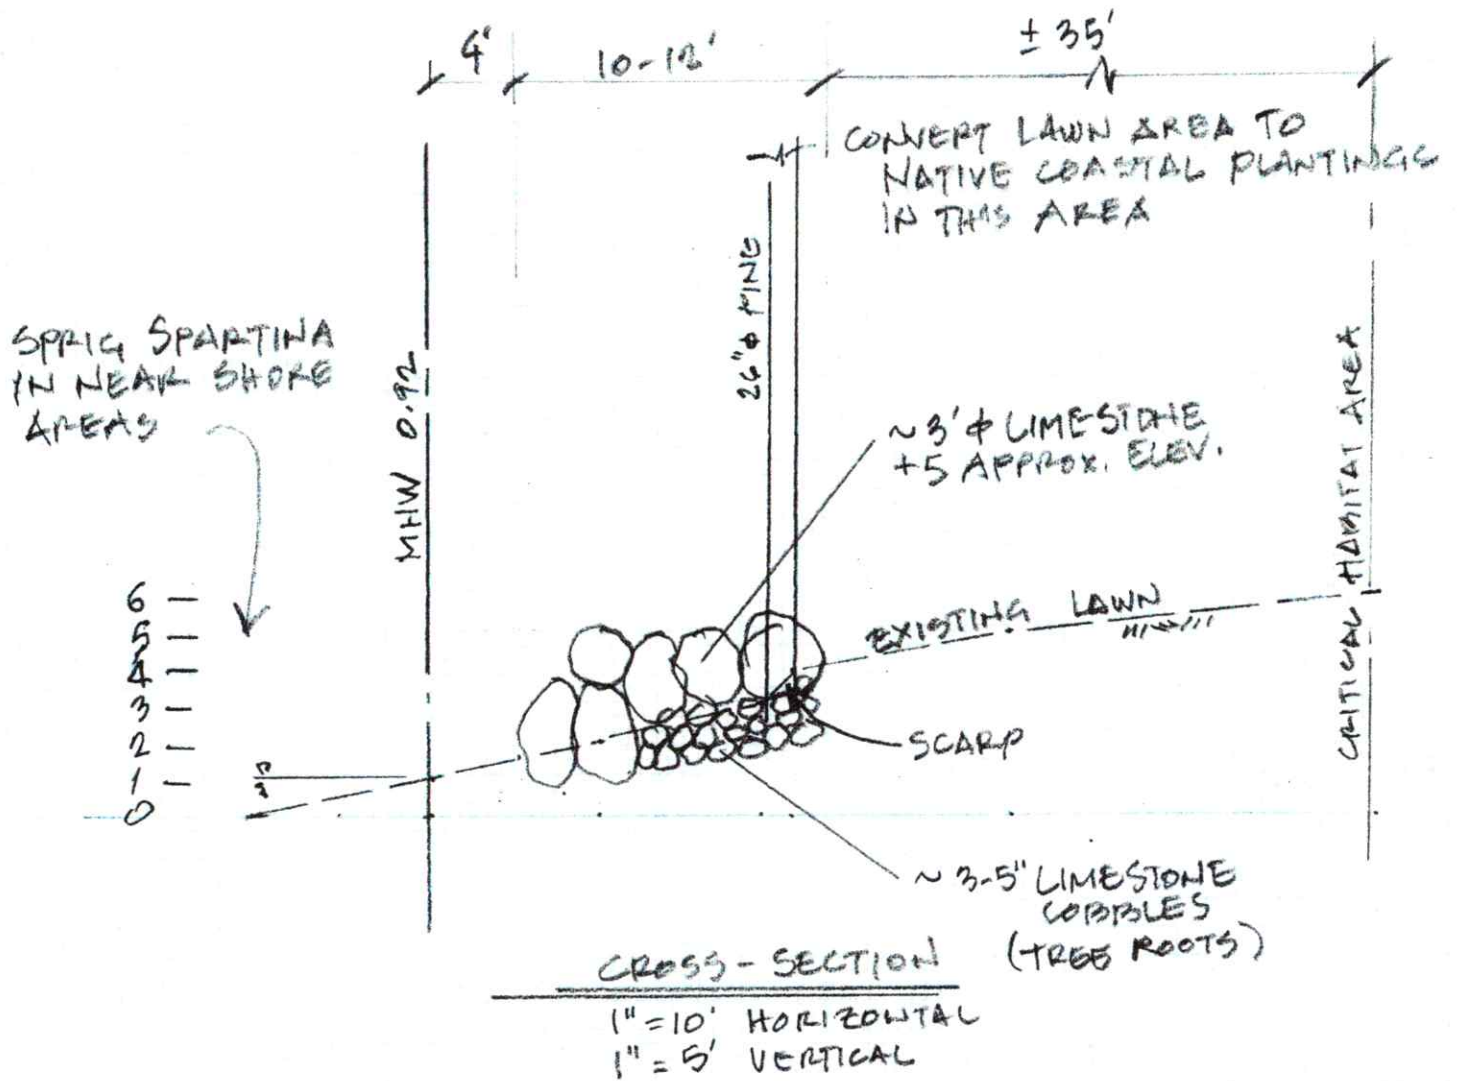 4'
10-12'
± 35'
CONVERT LAWN AREA TO
NATIVE COASTAL PLANTINGS
IN THIS AREA
26"ϕ PINE
SPRIG SPARTINA
IN NEAR SHORE
AREAS
MHW 0.92
~3'ϕ LIMESTONE
+5 APPROX. ELEV.
CRITICAL HABITAT AREA
EXISTING LAWN
6
5
4
3
2
1
0
SCARP
~3-5" LIMESTONE
COBBLES
(TREE ROOTS)
CROSS-SECTION
1"=10' HORIZONTAL
1"=5' VERTICAL